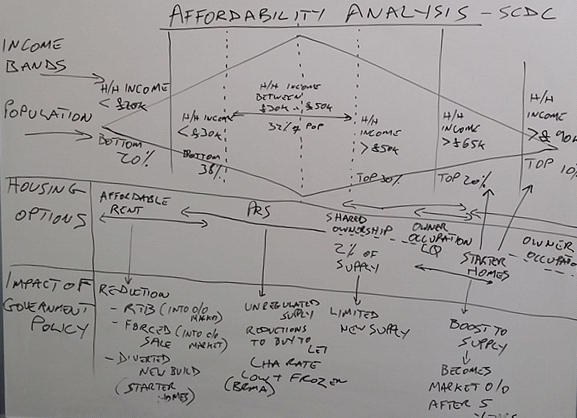 AFFORDABILITY ANALYSIS - SCDC
INCOME
BANDS
H/H INCOME
< £20K
H/H INCOME
< £30K
H/H INCOME
BETWEEN
£30K - £50K
32% of POP
H/H
INCOME
> £50K
H/H
INCOME
> £65K
H/H
INCOME
> £90K
POPULATION
BOTTOM
20%
BOTTOM
38%
TOP 30%
TOP 20%
TOP 10%
HOUSING
OPTIONS
AFFORDABLE
RENT
PRS
SHARED
OWNERSHIP
2% OF
SUPPLY
OWNER
OCCUPATION
LQ
STARTER
HOMES
OWNER
OCCUPATIO
IMPACT OF
GOVERNMENT
POLICY
REDUCTION
- RTB (INTO O/O
MARKET)
- FORCED (INTO O/O
SALE MARKET)
- DIVERTED
NEW BUILD
(STARTER
HOMES)
UNREGULATED
SUPPLY
REDUCTIONS
TO BUY TO
LET
LHA RATE
LOW & FROZEN
(BRMA)
LIMITED
NEW SUPPLY
BOOST TO
SUPPLY
BECOMES
MARKET O/O
AFTER 5